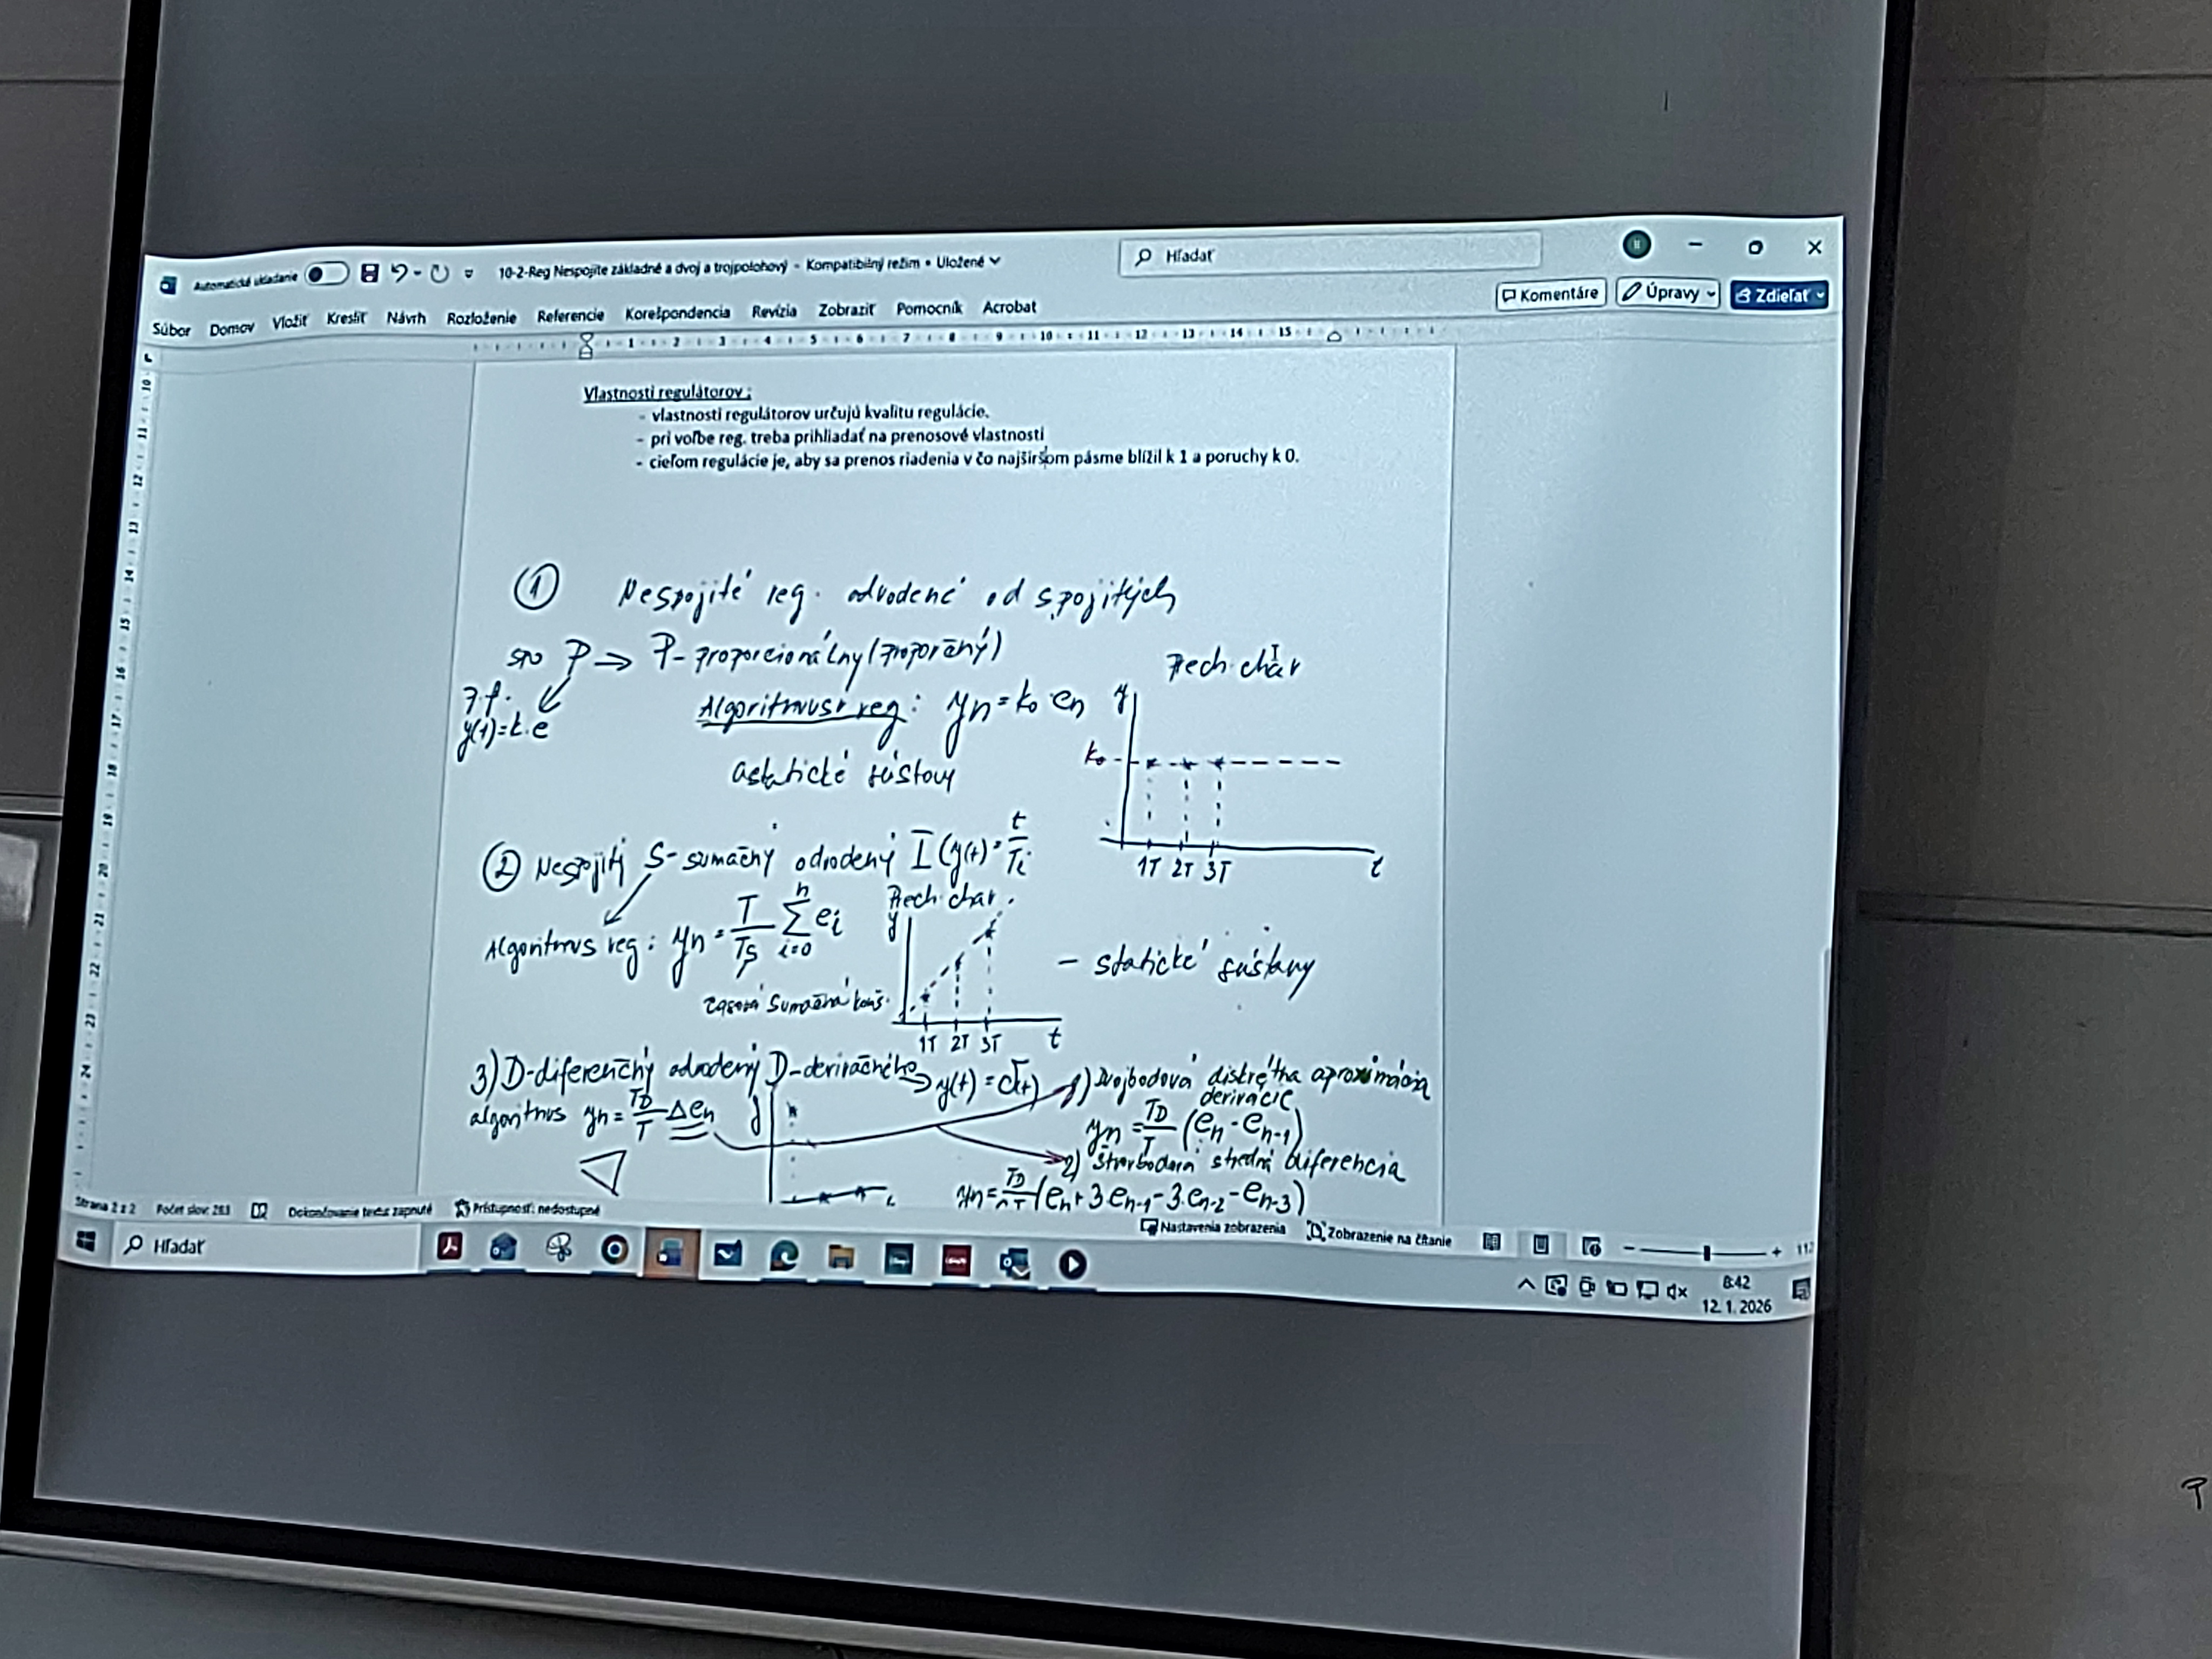 Automatické ukladanie 10-2-Reg Nespojite základné a dvoj a trojpolohový - Kompatibilný režim • Uložené Hľadať
Súbor Domov Vložiť Kresliť Návrh Rozloženie Referencie Korešpondencia Revízia Zobraziť Pomocník Acrobat Komentáre Úpravy Zdieľať
1 2 3 4 5 6 7 8 9 10 11 12 13 14 15
Vlastnosti regulátorov :
- vlastnosti regulátorov určujú kvalitu regulácie.
- pri voľbe reg. treba prihliadať na prenosové vlastnosti
- cieľom regulácie je, aby sa prenos riadenia v čo najširšom pásme blížil k 1 a poruchy k 0.
① Nespojité reg. odvodené od spojitých
P → P- proporcionálny (proporčný)
Prech. char
y(t)=k.e
Algoritmus reg: yn = k0 en
y
k0
astatické sústavy
1T 2T 3T t
② Nespojitý S-sumačný odvodený I (y(t)= t/Ti
Prech. char.
Algoritmus reg: yn = T/Ts Σ ei
n
i=0
y
- statické sústavy
časová sumačná konš.
1T 2T 3T t
3) D-diferenčný odvodený D-derivačného → y(t) = δ(t)
1) Dvojbodová diskrétna aproximácia
derivácie
algoritmus yn = TD/T Δen
y
yn = TD/T (en - en-1)
2) štvorbodová stredná diferencia
yn = (en + 3 en-1 - 3.en-2 - en-3)
Strana 2 z 2 Počet slov: 283 Dokončovanie textu: zapnuté Prístupnosť: nedostupné
Nastavenia zobrazenia Zobrazenie na čítanie
Hľadať
8:42
12. 1. 2026